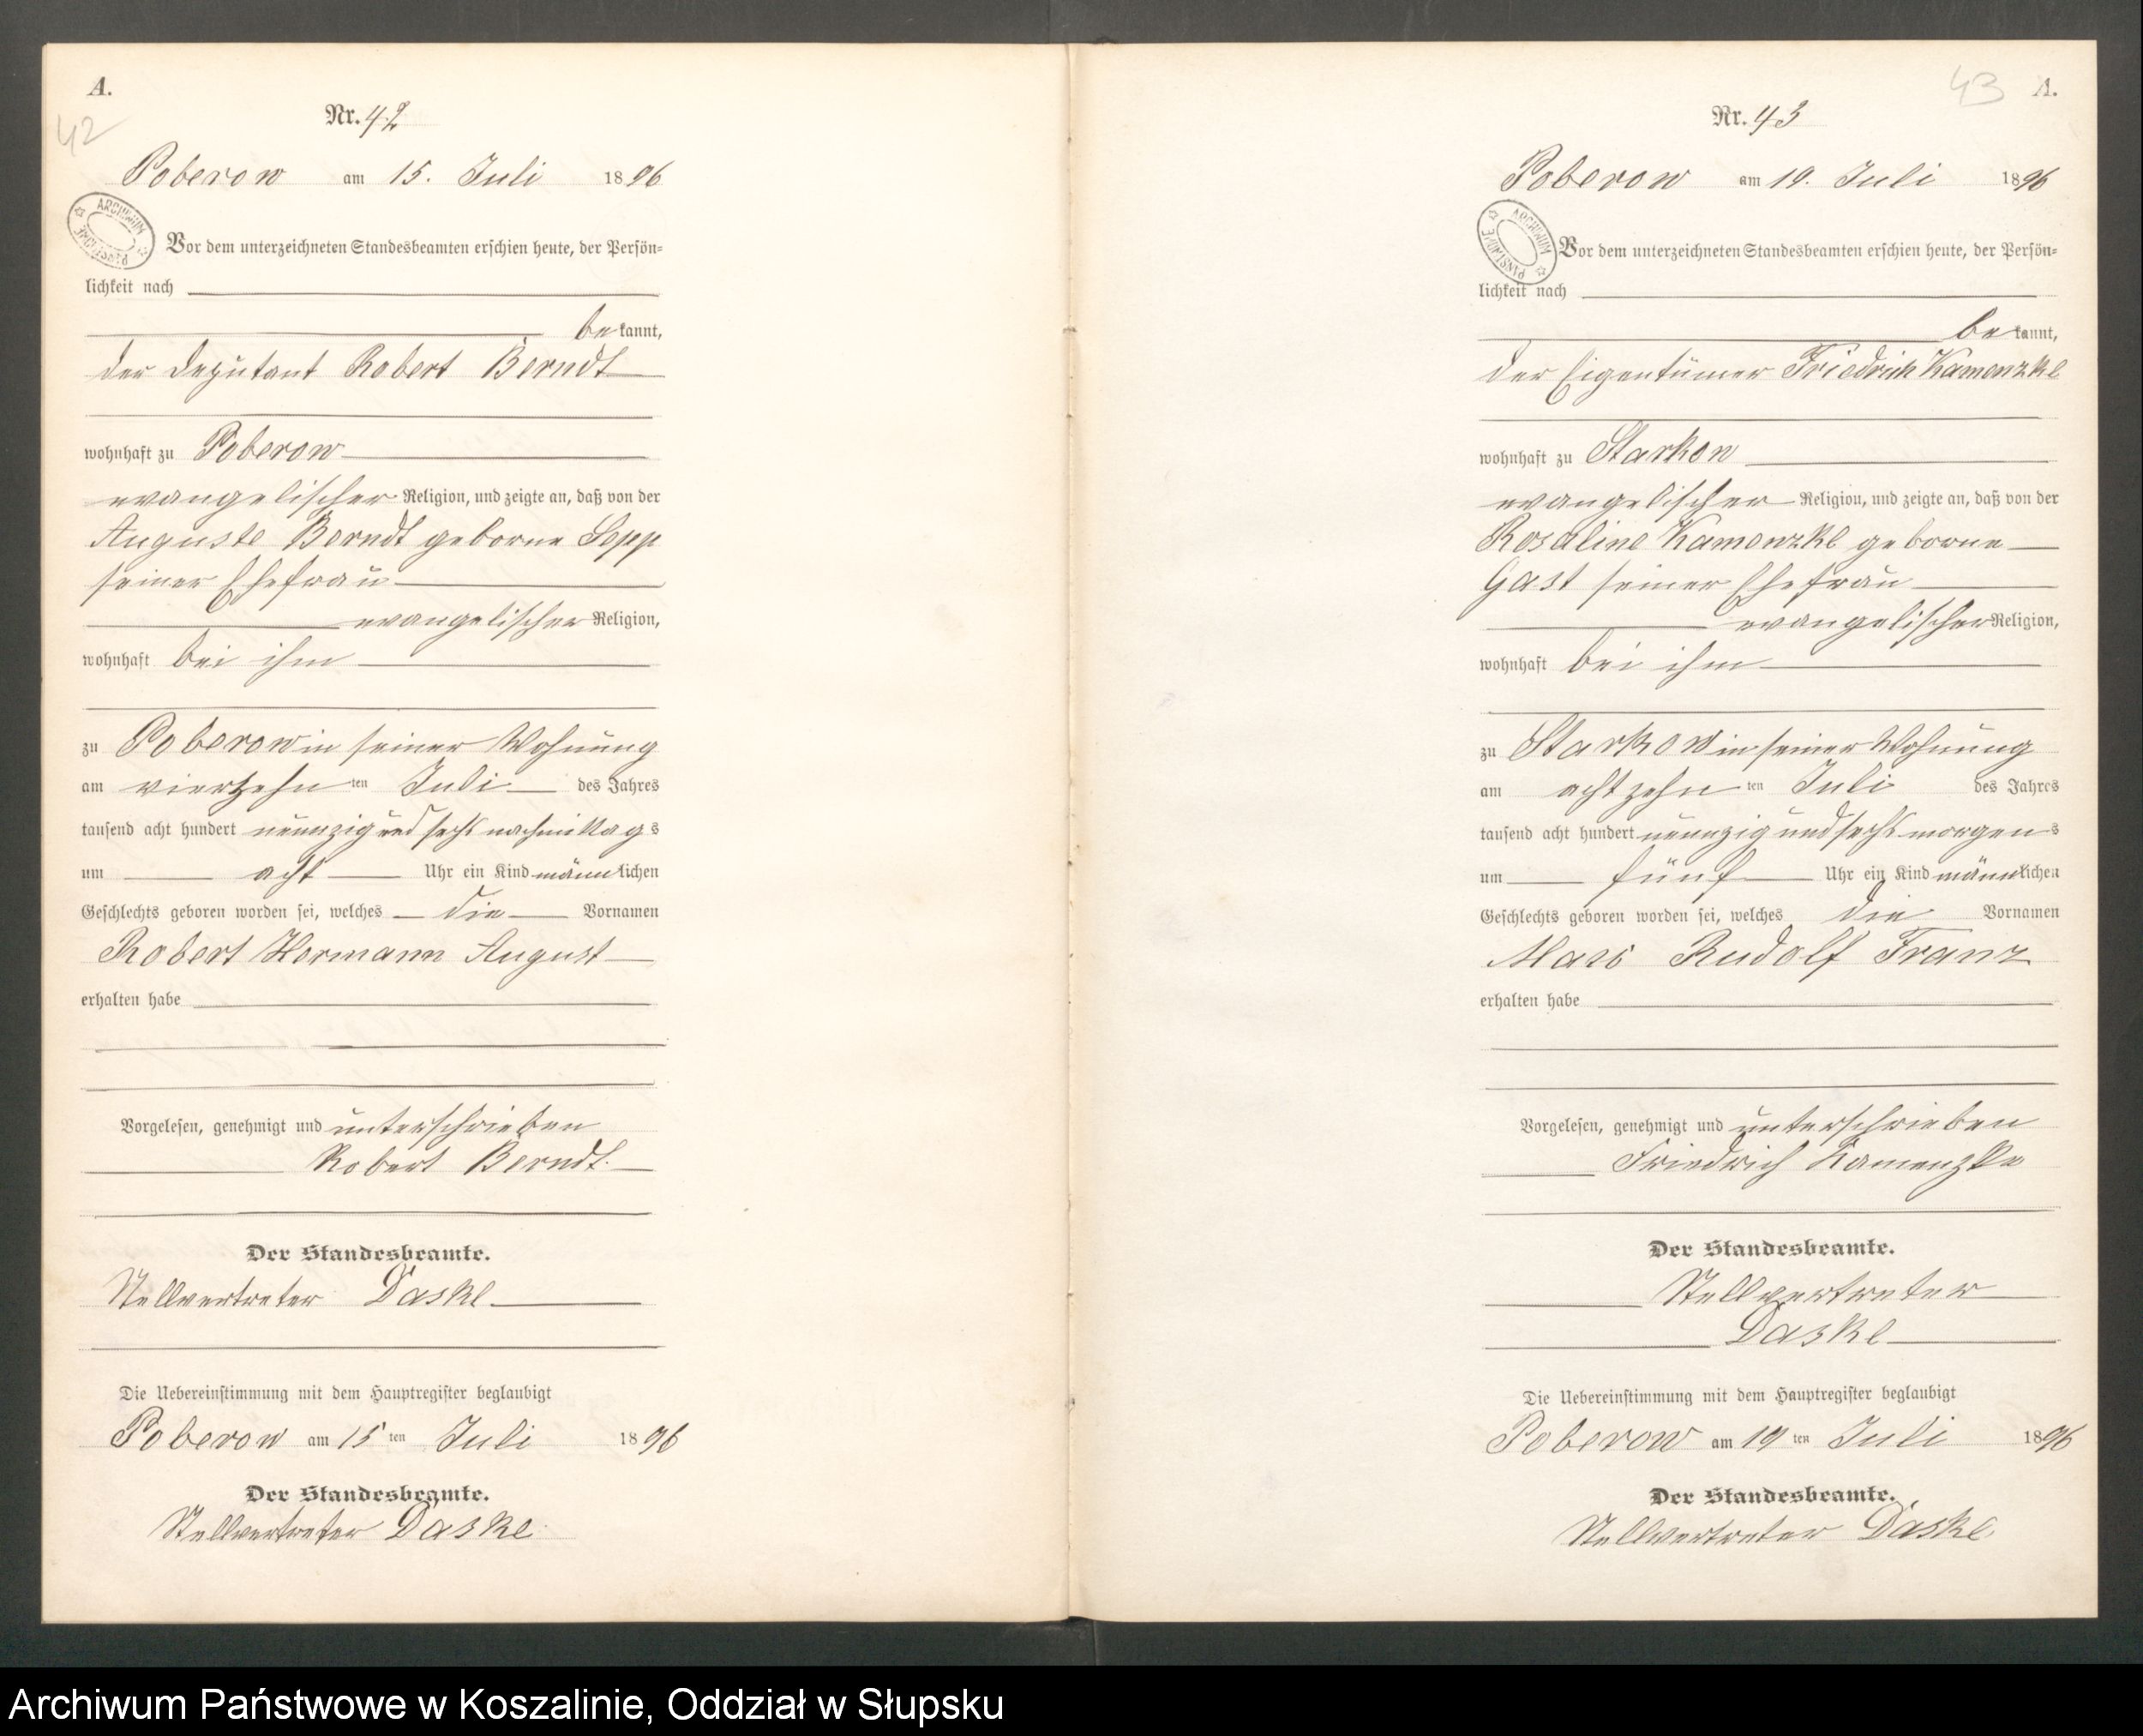 A.
42
Nr. 42
Poberow am 15. Juli 1896
ARCHIWUM PAŃSTWOWE
Vor dem unterzeichneten Standesbeamten erschien heute, der Persön=
lichkeit nach
bekannt,
der Deputant Robert Berndt
wohnhaft zu Poberow
evangelischer Religion, und zeigte an, daß von der
Auguste Berndt geborne Sepp
seiner Ehefrau
evangelischer Religion,
wohnhaft bei ihm
zu Poberow in seiner Wohnung
am vierzehnten Juli des Jahres
tausend acht hundert neunzig und sechs nachmittags
um acht Uhr ein Kind männlichen
Geschlechts geboren worden sei, welches die Vornamen
Robert Hermann August
erhalten habe
Vorgelesen, genehmigt und unterschrieben
Robert Berndt.
Der Standesbeamte.
Stellvertreter Daske
Die Uebereinstimmung mit dem Hauptregister beglaubigt
Poberow am 15ten Juli 1896
Der Standesbeamte.
Stellvertreter Daske
43 A.
Nr. 43
Poberow am 19. Juli 1896
ARCHIWUM PAŃSTWOWE
Vor dem unterzeichneten Standesbeamten erschien heute, der Persön=
lichkeit nach
bekannt,
der Eigentümer Friedrich Kamenzke
wohnhaft zu Starkow
evangelischer Religion, und zeigte an, daß von der
Rosaline Kamenzke geborne
Gast seiner Ehefrau
evangelischer Religion,
wohnhaft bei ihm
zu Starkow in seiner Wohnung
am achtzehnten Juli des Jahres
tausend acht hundert neunzig und sechs morgens
um fünf Uhr ein Kind männlichen
Geschlechts geboren worden sei, welches die Vornamen
Max Rudolf Franz
erhalten habe
Vorgelesen, genehmigt und unterschrieben
Friedrich Kamenzke
Der Standesbeamte.
Stellvertreter
Daske
Die Uebereinstimmung mit dem Hauptregister beglaubigt
Poberow am 19ten Juli 1896
Der Standesbeamte.
Stellvertreter Daske
Archiwum Państwowe w Koszalinie, Oddział w Słupsku